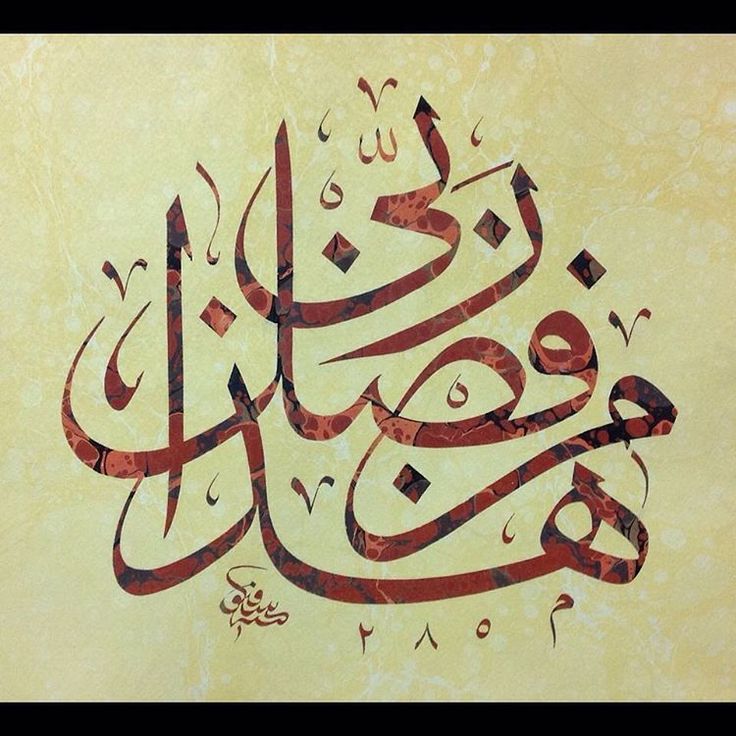 هذا من فضل ربي
م ٢٨٥